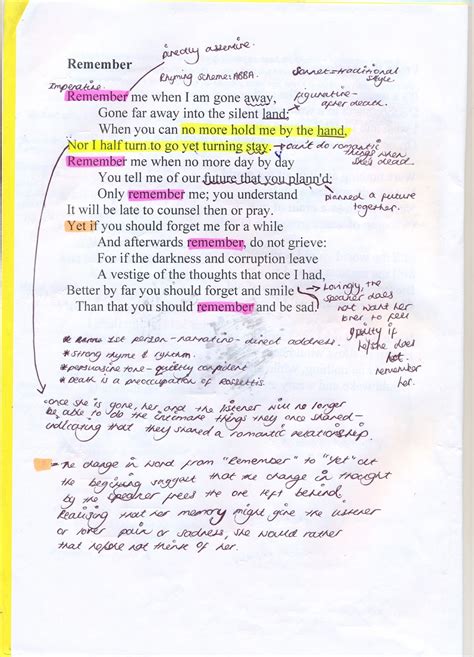 directly assertive.
Remember
Rhyming Scheme: ABBA.
Sonnet = traditional style.
Imperative.
Remember me when I am gone away,
figurative - after death.
Gone far away into the silent land;
When you can no more hold me by the hand,
Nor I half turn to go yet turning stay.
can't do romantic things when she's dead.
Remember me when no more day by day
You tell me of our future that you plann'd:
planned a future together.
Only remember me; you understand
It will be late to counsel then or pray.
Yet if you should forget me for a while
And afterwards remember, do not grieve:
For if the darkness and corruption leave
A vestige of the thoughts that once I had,
Better by far you should forget and smile
Than that you should remember and be sad.
Lovingly, the
speaker does
not want her
lover to feel
guilty if
he/she does
not
remember
her.
* 1st person - narrative - direct address.
* strong rhyme & rhythm.
* persuasive tone - quietly confident
* Death is a preoccupation of Rossettis.
once she is gone, her and the listener will no longer
be able to do the intimate things they once shared -
indicating that they shared a romantic relationship.
* The change in word from "Remember" to "Yet" at
the beginning suggest that the change in thought
by the speaker frees the one left behind.
Realising that her memory might give the listener
or lover pain or sadness, she would rather
that he/she not think of her.